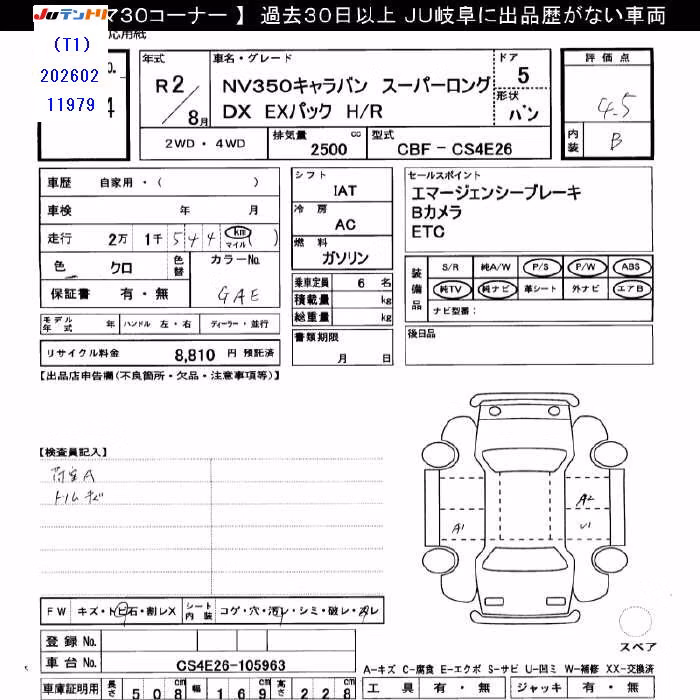 JUテントリ 730コーナー 】 過去30日以上 JU岐阜に出品歴がない車両
(T1)
202602
11979
応用紙
年式 R2/8月
車名・グレード
NV350キャラバン スーパーロング
DX EXパック H/R
ドア 5
形状 バン
評価点
4.5
内装 B
2WD・4WD
排気量 cc 2500
型式 CBF-CS4E26
車歴 自家用・( )
車検 年 月
走行 2万 1千 5 4 4 km マイル ( )
色 クロ 色替
カラーNo. GAE
保証書 有・無
シフト IAT
冷房 AC
燃料 ガソリン
セールスポイント
エマージェンシーブレーキ
Bカメラ
ETC
乗車定員 6 名
積載量 kg
総重量 kg
装備品
S/R 純A/W P/S P/W ABS
純TV 純ナビ 革シート 外ナビ エアB
ナビ型番:
モデル年式 年 ハンドル 左・右 ディーラー・並行
書類期限
月 日
後日品
リサイクル料金 8,810 円 預託済
【出品店申告欄(不良箇所・欠品・注意事項等)】
【検査員記入】
荷室A
トリムキズ
A1
A2
U1
FW キズ・トビ石・割レX
シート内装 コゲ・穴・汚レ・シミ・破レ・スレ
登録No.
車台No. CS4E26-105963
スペア
A-キズ C-腐食 E-エクボ S-サビ U-凹ミ W-補修 XX-交換済
車庫証明用 長さ 508cm 幅 169cm 高さ 228cm
工具 有・無 ジャッキ 有・無